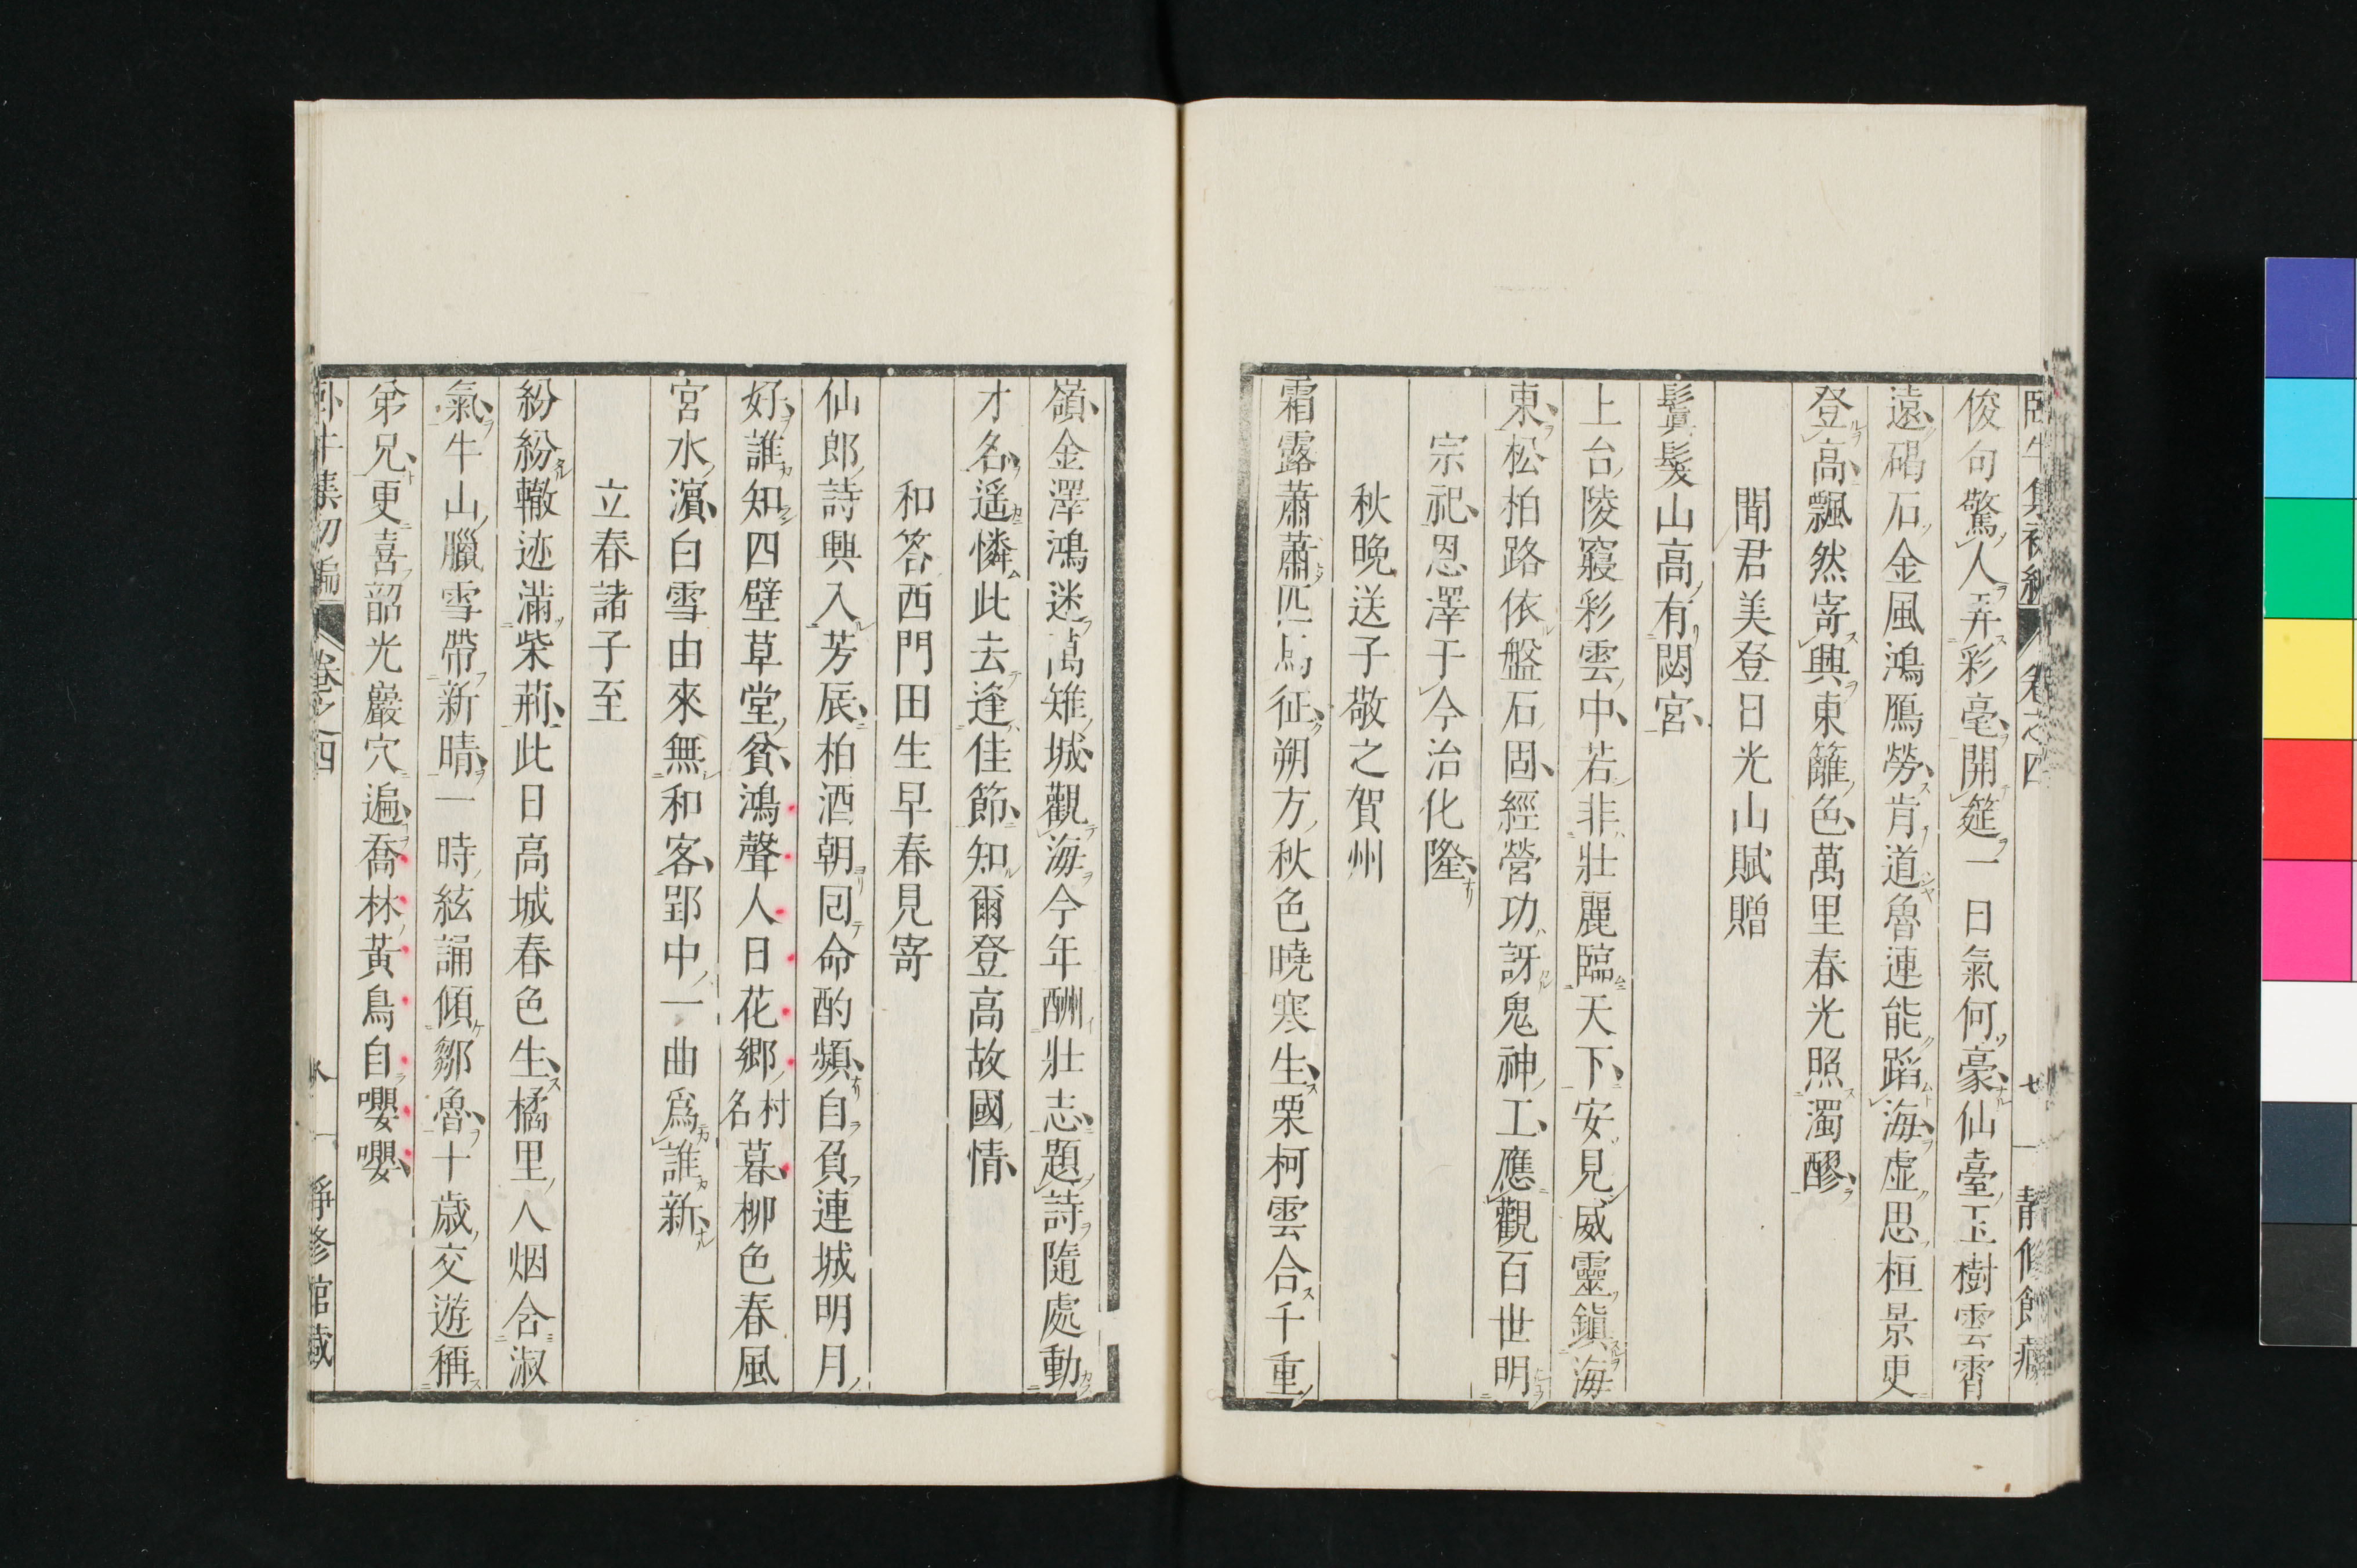 俊句驚人弄彩毫開筵一日氣何豪仙臺玉樹雲霄
遠碣石金風鴻鴈勞肯道魯連能蹈海虛思桓景更
登高飄然寄興東籬色萬里春光照濁醪
聞君美登日光山賦贈
鬒髮山高有閟宮
上台陵寢彩雲中若非壯麗臨天下安見威靈鎭海
東松柏路依盤石固經營功訝鬼神工應觀百世明
宗祀恩澤于今治化隆
秋晚送子敬之賀州
霜露蕭蕭匹馬征朔方秋色曉寒生栗柯雲合千重
嶺金澤鴻迷萬雉城觀海今年酬壯志題詩隨處動
才名遙憐此去逢佳節知爾登高故國情
和答西門田生早春見寄
仙郎詩興入芳辰柏酒朝回命酌頻自負連城明月
好誰知四壁草堂貧鴻聲人日花鄉村名暮柳色春風
宮水濵白雪由來無和客郢中一曲爲誰新
立春諸子至
紛紛轍迹滿柴荊此日高城春色生橘里人烟含淑
氣牛山臘雪帶新晴一時絃誦傾鄒魯十歳交遊稱
弟兄更喜韶光巖穴遍喬林黃鳥自嚶嚶
牛集初編 卷之四 靜修館藏